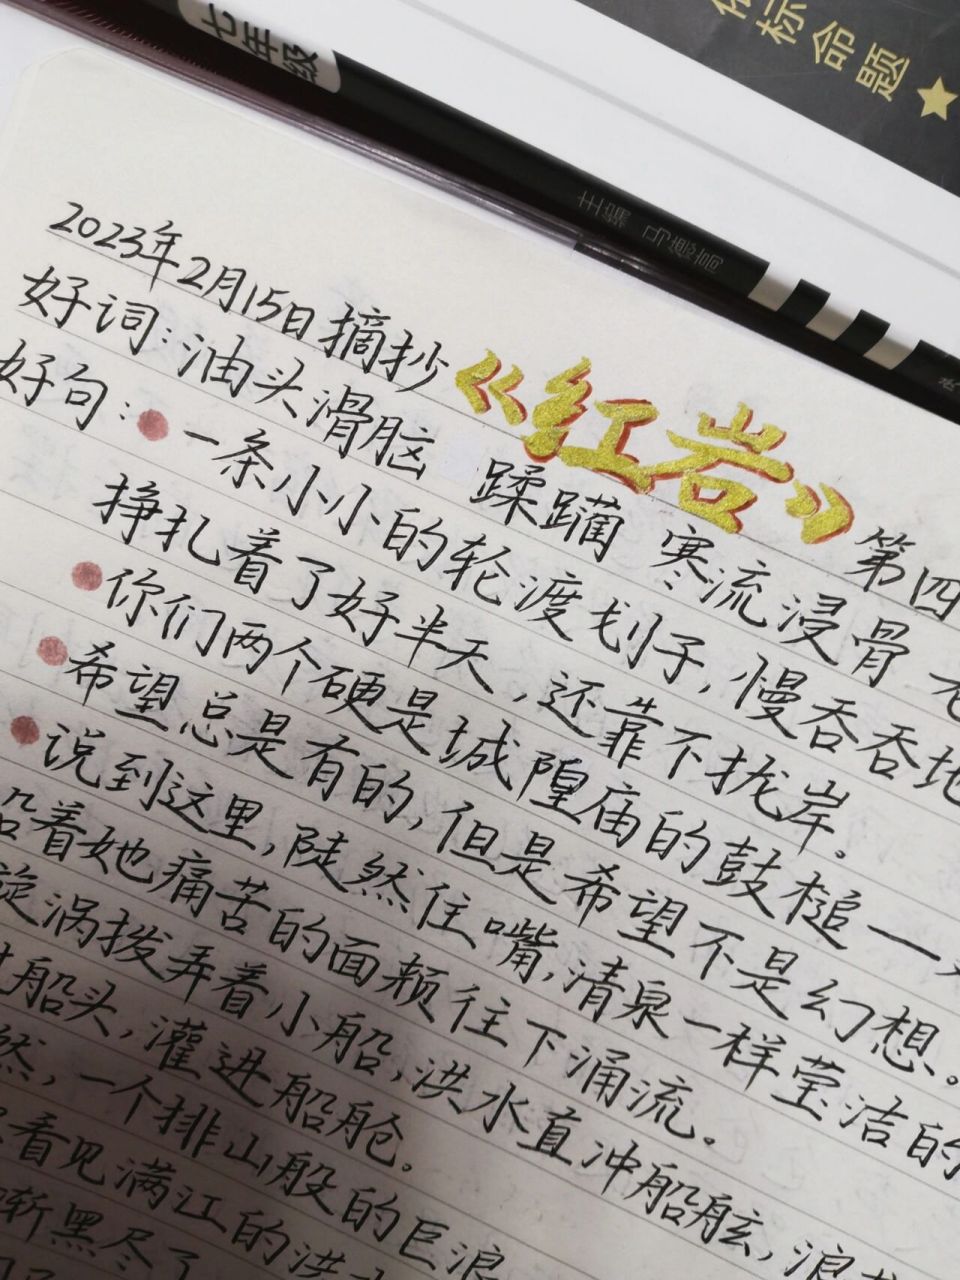 七年级
标命题
主编
2023年2月15日摘抄《红岩》第四
好词：油头滑脑 蹂躏 寒流浸骨
好句：●一条小小的轮渡划子，慢吞吞地
挣扎着了好半天，还靠不拢岸。
●你们两个硬是城隍庙的鼓槌一
●希望总是有的，但是希望不是幻想。
●说到这里，陡然住嘴，清泉一样莹洁的
沿着她痛苦的面颊往下涌流。
旋涡拨弄着小船，洪水直冲船舷，浪
船头，灌进船舱。
然，一个排山般的巨浪
看见满江的洪
渐黑尽了